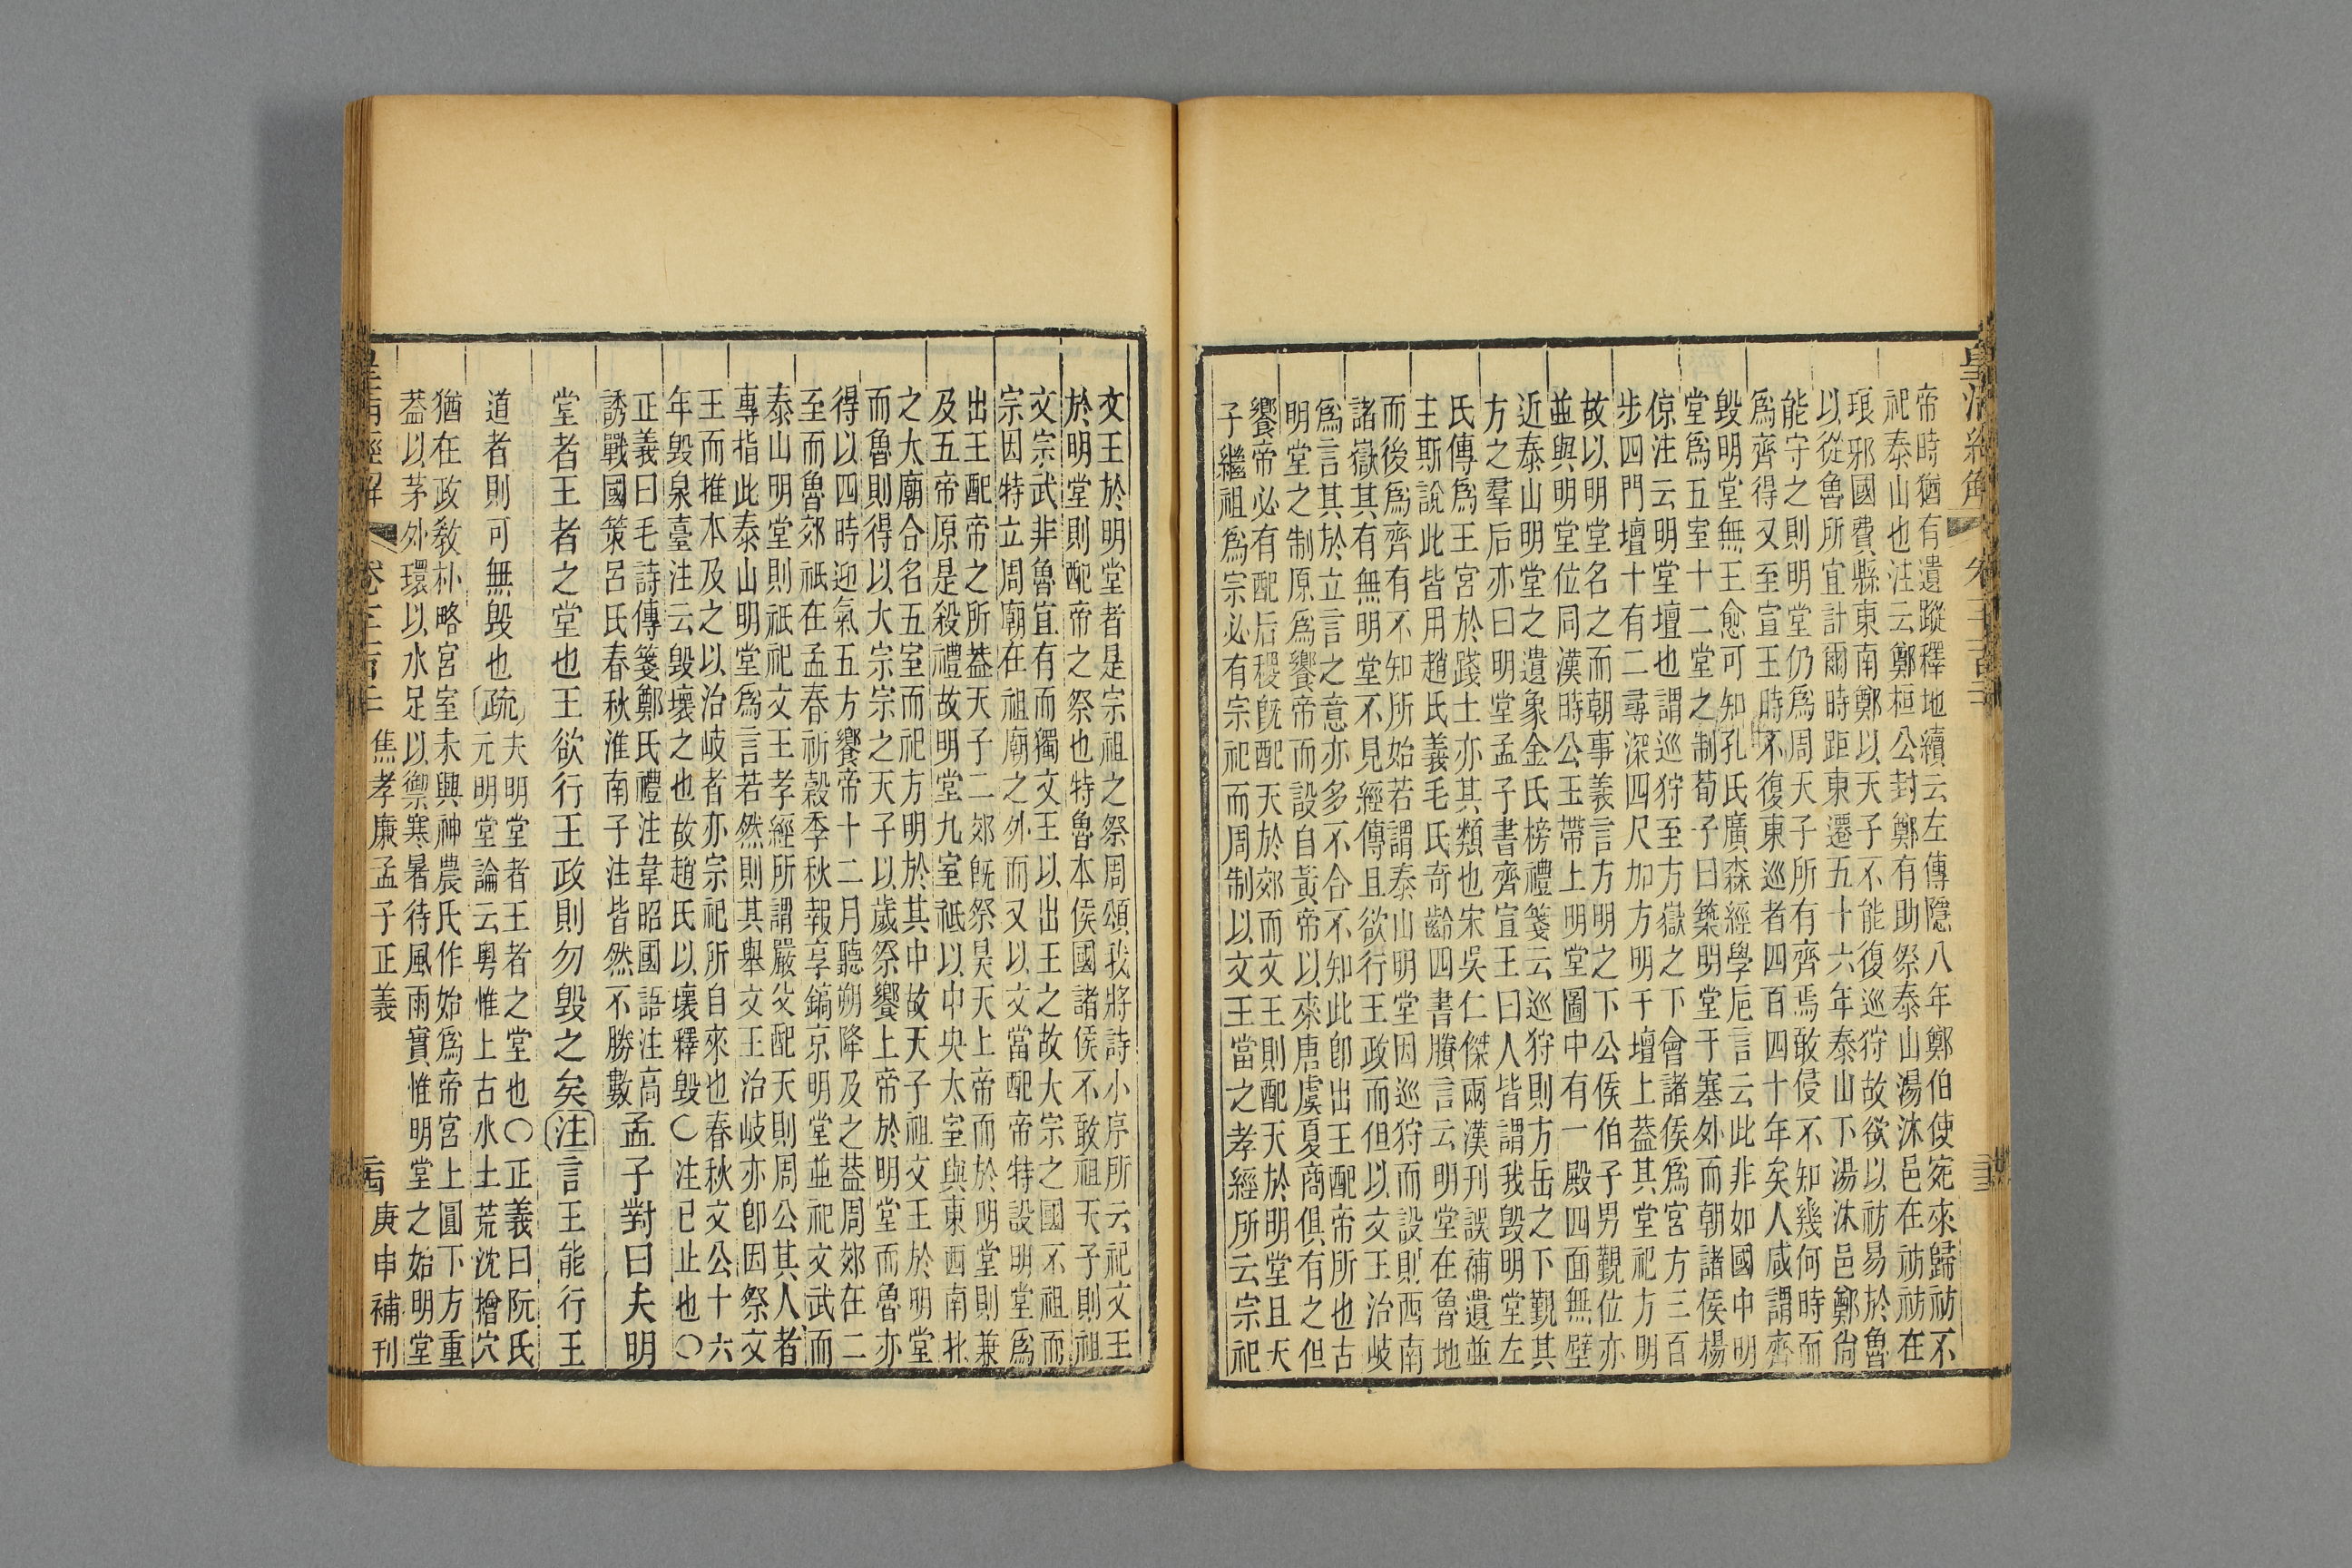 皇清經解
帝時猶有遺蹤釋地續云左傳隱八年鄭伯使宛來歸祊不
祀泰山也注云鄭桓公封鄭有助祭泰山湯沐邑在祊祊在
琅邪國費縣東南鄭以天子不能復巡狩故欲以祊易於魯
以從魯所宜計爾時距東遷五十六年泰山下湯沐邑鄭尙
能守之則明堂仍爲周天子所有齊焉敢侵不知幾何時而
爲齊得又至宣王時不復東巡者四百四十年矣人咸謂齊
毀明堂無王愈可知孔氏廣森經學卮言云此非如國中明
堂爲五室十二堂之制荀子曰築明堂于塞外而朝諸侯楊
倞注云明堂壇也謂巡狩至方嶽之下會諸侯爲宮方三百
步四門壇十有二尋深四尺加方明于壇上葢其堂祀方明
故以明堂名之而朝事義言方明之下公侯伯子男覲位亦
並與明堂位同漢時公玉帶上明堂圖中有一殿四面無壁
近泰山明堂之遺象金氏榜禮箋云巡狩則方岳之下覲其
方之羣后亦曰明堂孟子書齊宣王曰人皆謂我毀明堂左
氏傳爲王宮於踐土亦其類也宋吳仁傑兩漢刊誤補遺並
主斯說此皆用趙氏義毛氏奇齡四書賸言云明堂在魯地
而後爲齊有不知所始若謂泰山明堂因巡狩而設則西南
諸嶽其有無明堂不見經傳且欲行王政而但以文王治岐
爲言其於立言之意亦多不合不知此卽出王配帝所也古
明堂之制原爲饗帝而設自黃帝以來唐虞夏商俱有之但
饗帝必有配后稷旣配天於郊而文王則配天於明堂且天
子繼祖爲宗必有宗祀而周制以文王當之孝經所云宗祀
文王於明堂者是宗祖之祭周頌我將詩小序所云祀文王
於明堂則配帝之祭也特魯本侯國諸侯不敢祖天子則祖
文宗武非魯宜有而獨文王以出王之故大宗之國不祖而
宗因特立周廟在祖廟之外而又以文當配帝特設明堂爲
出王配帝之所葢天子二郊旣祭昊天上帝而於明堂則兼
及五帝原是殺禮故明堂九室祗以中央太室與東西南北
之太廟合名五室而祀方明於其中故天子祖文王於明堂
而魯則得以大宗宗之天子以歲祭饗上帝於明堂而魯亦
得以四時迎氣五方饗帝十二月聽朔降及之葢周郊在二
至而魯郊祇在孟春祈穀季秋報享鎬京明堂並祀文武而
泰山明堂則祇祀文王孝經所謂嚴父配天則周公其人者
專指此泰山明堂爲言若然則其舉文王治岐亦卽因祭文
王而推本及之以治岐者亦宗祀所自來也春秋文公十六
年毀泉臺注云毀壞之也故趙氏以壞釋毀〇注已止也〇
正義曰毛詩傳箋鄭氏禮注韋昭國語注高
誘戰國策呂氏春秋淮南子注皆然不勝數孟子對曰夫明
堂者王者之堂也王欲行王政則勿毀之矣注言王能行王
道者則可無毀也疏夫明堂者王者之堂也〇正義曰阮氏
元明堂論云粵惟上古水土荒沈橧穴
猶在政敎朴略宮室未興神農氏作始爲帝宮上圓下方重
葢以茅外環以水足以禦寒暑待風雨實惟明堂之始明堂
皇淸經解
焦孝廉孟子正義
庚申補刊